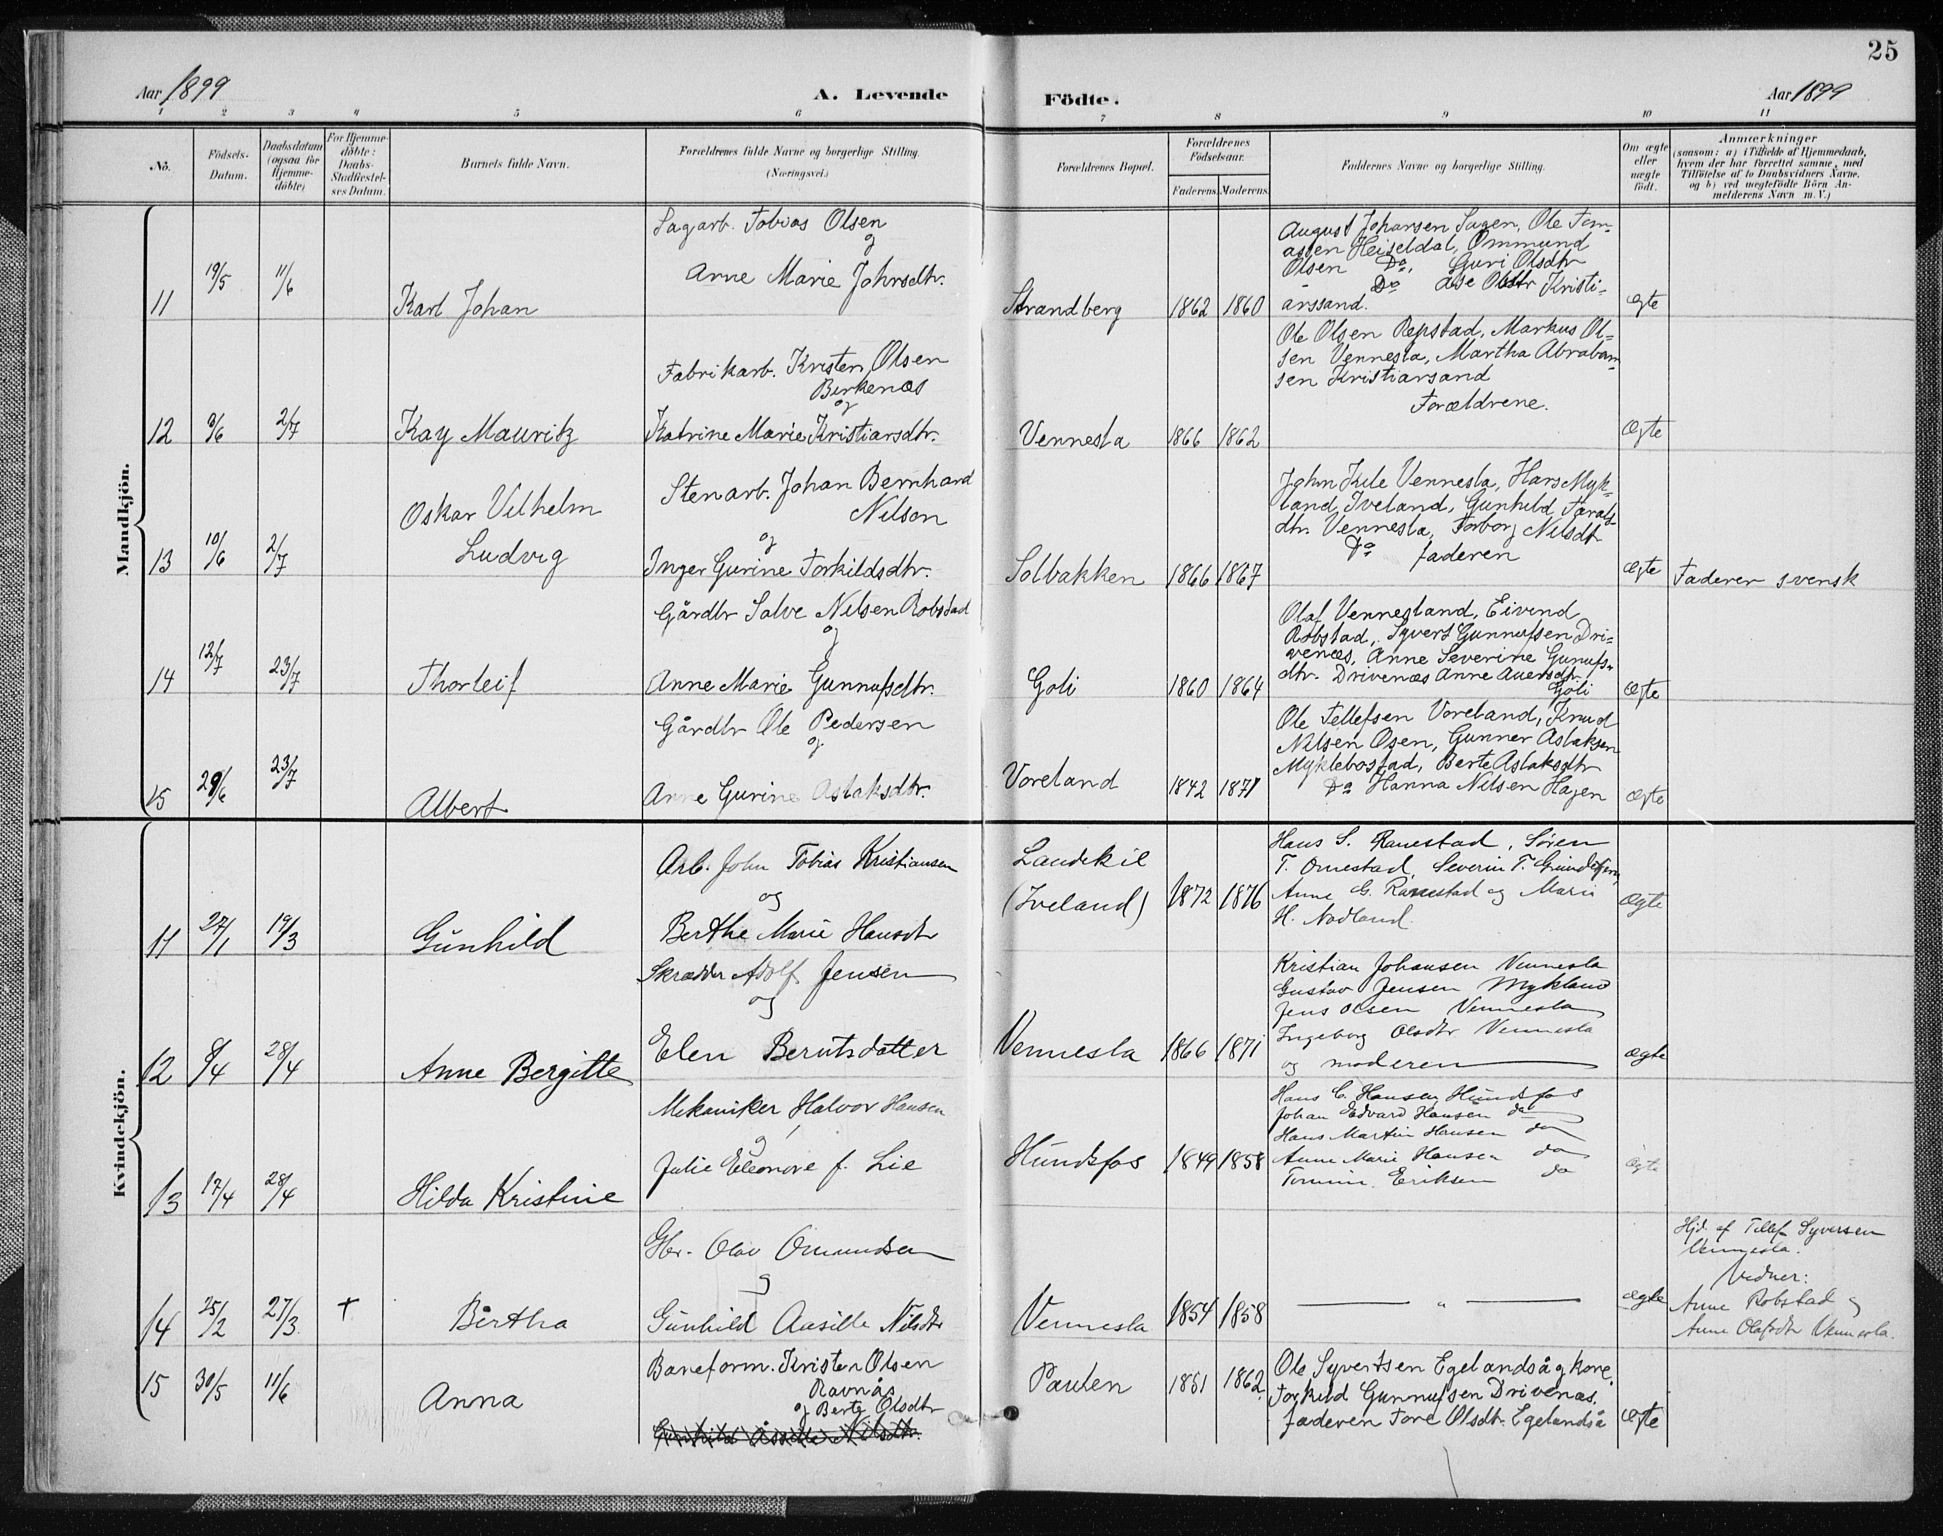 25
Aar 1899
A. Levende
Födte.
Aar 1899
1 2 3 4 5 6 7 8 9 10 11
No.
Födsels-
Datum.
Daabsdatum
(ogsaa for
Hjemme-
döbte)
For Hjemme-
döbte:
Daabs-
Stadfæstel-
ses Datum.
Barnets fulde Navn.
Forældrenes fulde Navne og borgerlige Stilling.
(Næringsvei.)
Forældrenes Bopæl.
Forældrenes
Födselsaar.
Faderens. Moderens.
Faddernes Navne og borgerlige Stilling.
Om ægte
eller
uægte
født.
Anmærkninger
(saasom: a) i Tilfælde af Hjemmedaab,
hvem der har forrettet samme, med
Tilføielse af to Daabsvidners Navne,
og b) ved uægtefødte Börn An-
melderens Navn m.V.)
Mandkjön.
11
19/5
11/6
Karl Johan
Sagarb. Tobias Olsen
og
Anne Marie Johnsdtr.
Strandberg
1862 1860
August Johansen Sagen, Ole Tom-
assen Heiseldal, Ommund
Olsen Do, Guri Olsdtr
Do Åse Olsdtr Kristi-
anssand.
ægte
12
9/6
2/7
Kay Mauritz
Fabrikarb. Kristen Olsen
Birkenæs
og
Katrine Marie Kristiansdtr.
Vennesla
1866 1862
Ole Olsen Repstad, Markus Ol-
sen Vennesla, Martha Abraham-
sen Kristiansand
Forældrene.
Ægte
13
10/6
2/7
Oskar Vilhelm
Ludvig
Stenarb. Johan Bernhard
Nilson
og
Inger Gurine Torkildsdtr.
Solbakken
1866 1867
John Kile Vennesla, Hans Myk-
land Iveland, Gunhild Tarals-
dtr. Vennesla, Torborg Nilsdtr
Do faderen
Ægte
Faderen svensk
14
12/7
23/7
Thorleif
Gårdbr Salve Nilsen Robstad
og
Anne Marie Gunnufsdtr.
Goli
1860 1864
Olaf Vennesland, Eivind
Robstad, Syvert Gunnufsen Dri-
venæs, Anne Severine Gunufs-
dtr. Drivenæs Anne Auensdtr.
Goli
Ægte
15
29/6
23/7
Albert
Gårdbr Ole Pedersen
og
Anne Gurine Aslaksdtr.
Voreland
1842 1871
Ole Tellefsen Voreland, Knud
Nilsen Osen, Gunner Aslaksen
Myklebostad, Berte Aslaksdtr
Do Hanna Nilsen Hagen
Ægte
Kvindekjön.
11
27/1
19/3
Gunhild
Arb. John Tobias Kristiansen
og
Berthe Marie Hansdtr
Landekil
(Iveland)
1872 1876
Hans S. Ranestad, Søren
T. Omestad, Severin T.
Anne G. Ranestad og Marie
H. Nodland.
Ægte
12
8/4
28/4
Anne Bergitte
Skrædder Adolf Jensen
og
Elen Berntsdatter
Vennesla
1866 1871
Kristian Johansen Vennesla
Gustav Jensen Mykland
Jens Olsen Vennesla
Ingeborg Olsdtr Vennesla
og moderen
ægte
13
17/4
28/4
Hilda Kristine
Mekaniker Halvor Hansen
og
Julie Eleonore f. Lie
Hunsfos
1849 1858
Hans C. Hansen Hunsfos
Johan Edvard Hansen do
Hans Martin Hansen do
Anne Marie Hansen do
Tomine Eriksen do
ægte
14
25/2
27/3
+
Bertha
Gbr. Olav Omundsen
og
Gunhild Aasille Nilsdtr
Vennesla
1854 1858
— " —
ægte
Hjd. af Tellef Syversen
Vennesla.
Vidner:
Anne Robstad og
Anne Olafsdtr Vennesla.
15
30/5
11/6
Anna
Baneform. Kristen Olsen
Ravnås
og Berte Olsdtr
Gunhild Åsille Nilsdtr.
Paulen
1851 1862
Ole Syvertsen Egelandså g kone,
Torkild Gunnufsen Drivenæs.
faderen Tore Olsdtr. Egelandså
Ægte